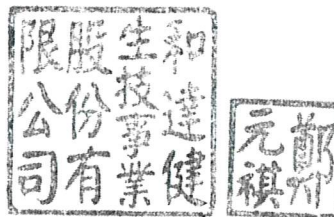 和達健
生技事業
股份有
限公司
鄭
元祺